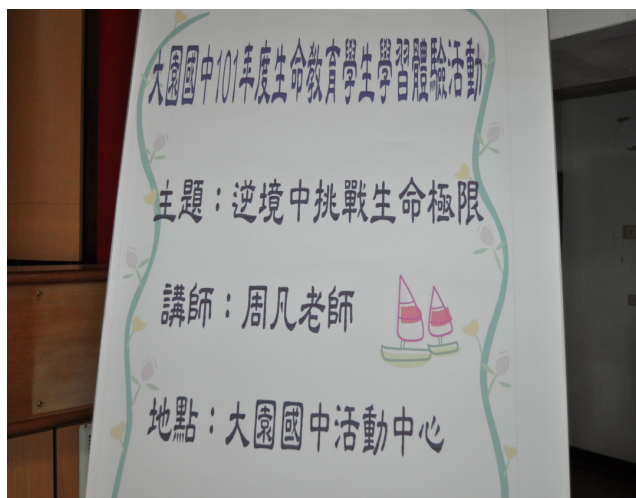 大園國中101年度生命教育學生學習體驗活動
主題：逆境中挑戰生命極限
講師：周凡老師
地點：大園國中活動中心